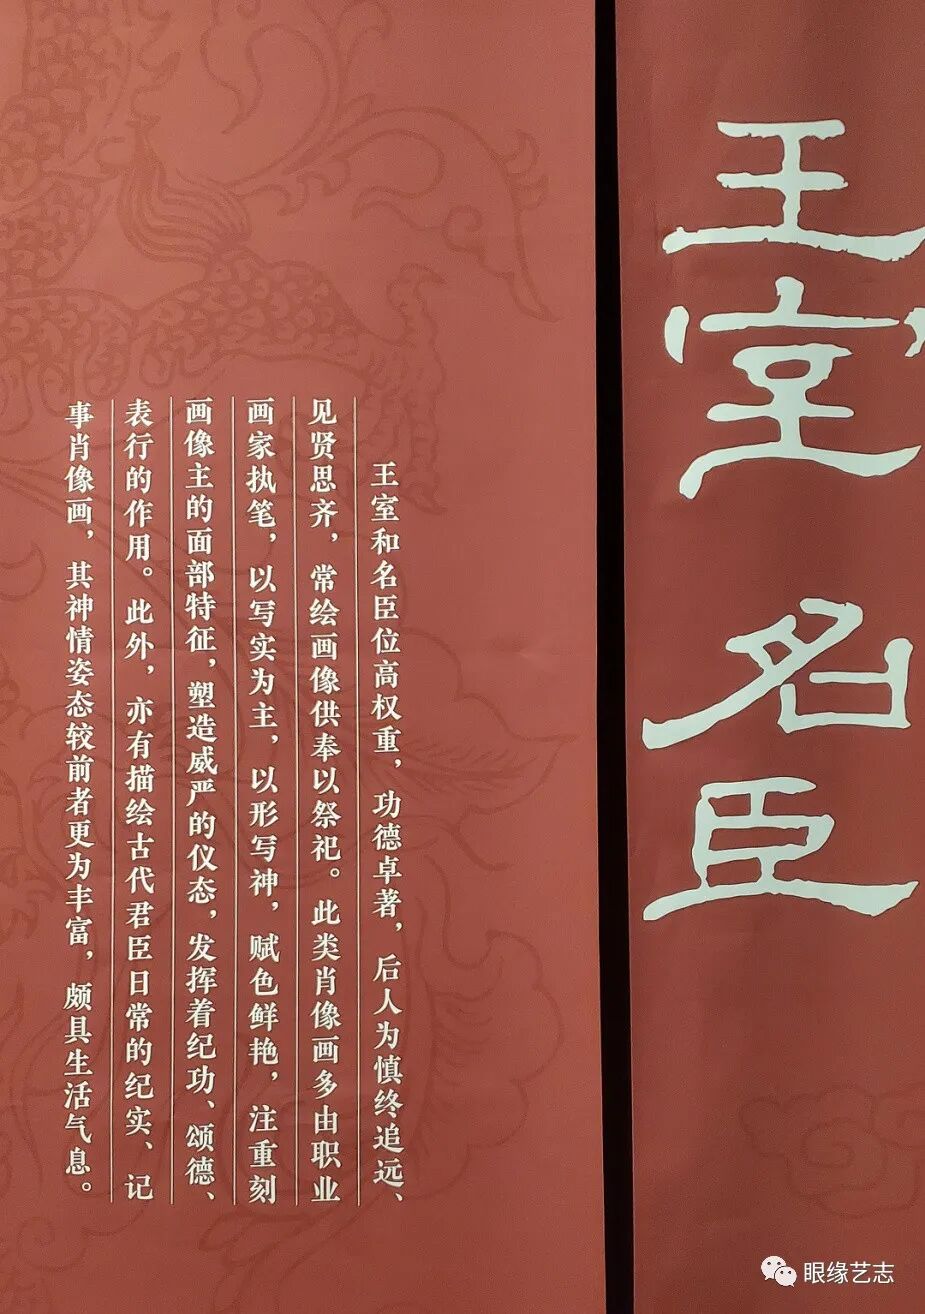 王室
名臣
王室和名臣位高权重，功德卓著，后人为慎终追远、
见贤思齐，常绘画像供奉以祭祀。此类肖像画多由职业
画家执笔，以写实为主，以形写神，赋色鲜艳，注重刻
画像主的面部特征，塑造威严的仪态，发挥着纪功、颂德、
表行的作用。此外，亦有描绘古代君臣日常的纪实、记
事肖像画，其神情姿态较前者更为丰富，颇具生活气息。
眼缘艺志